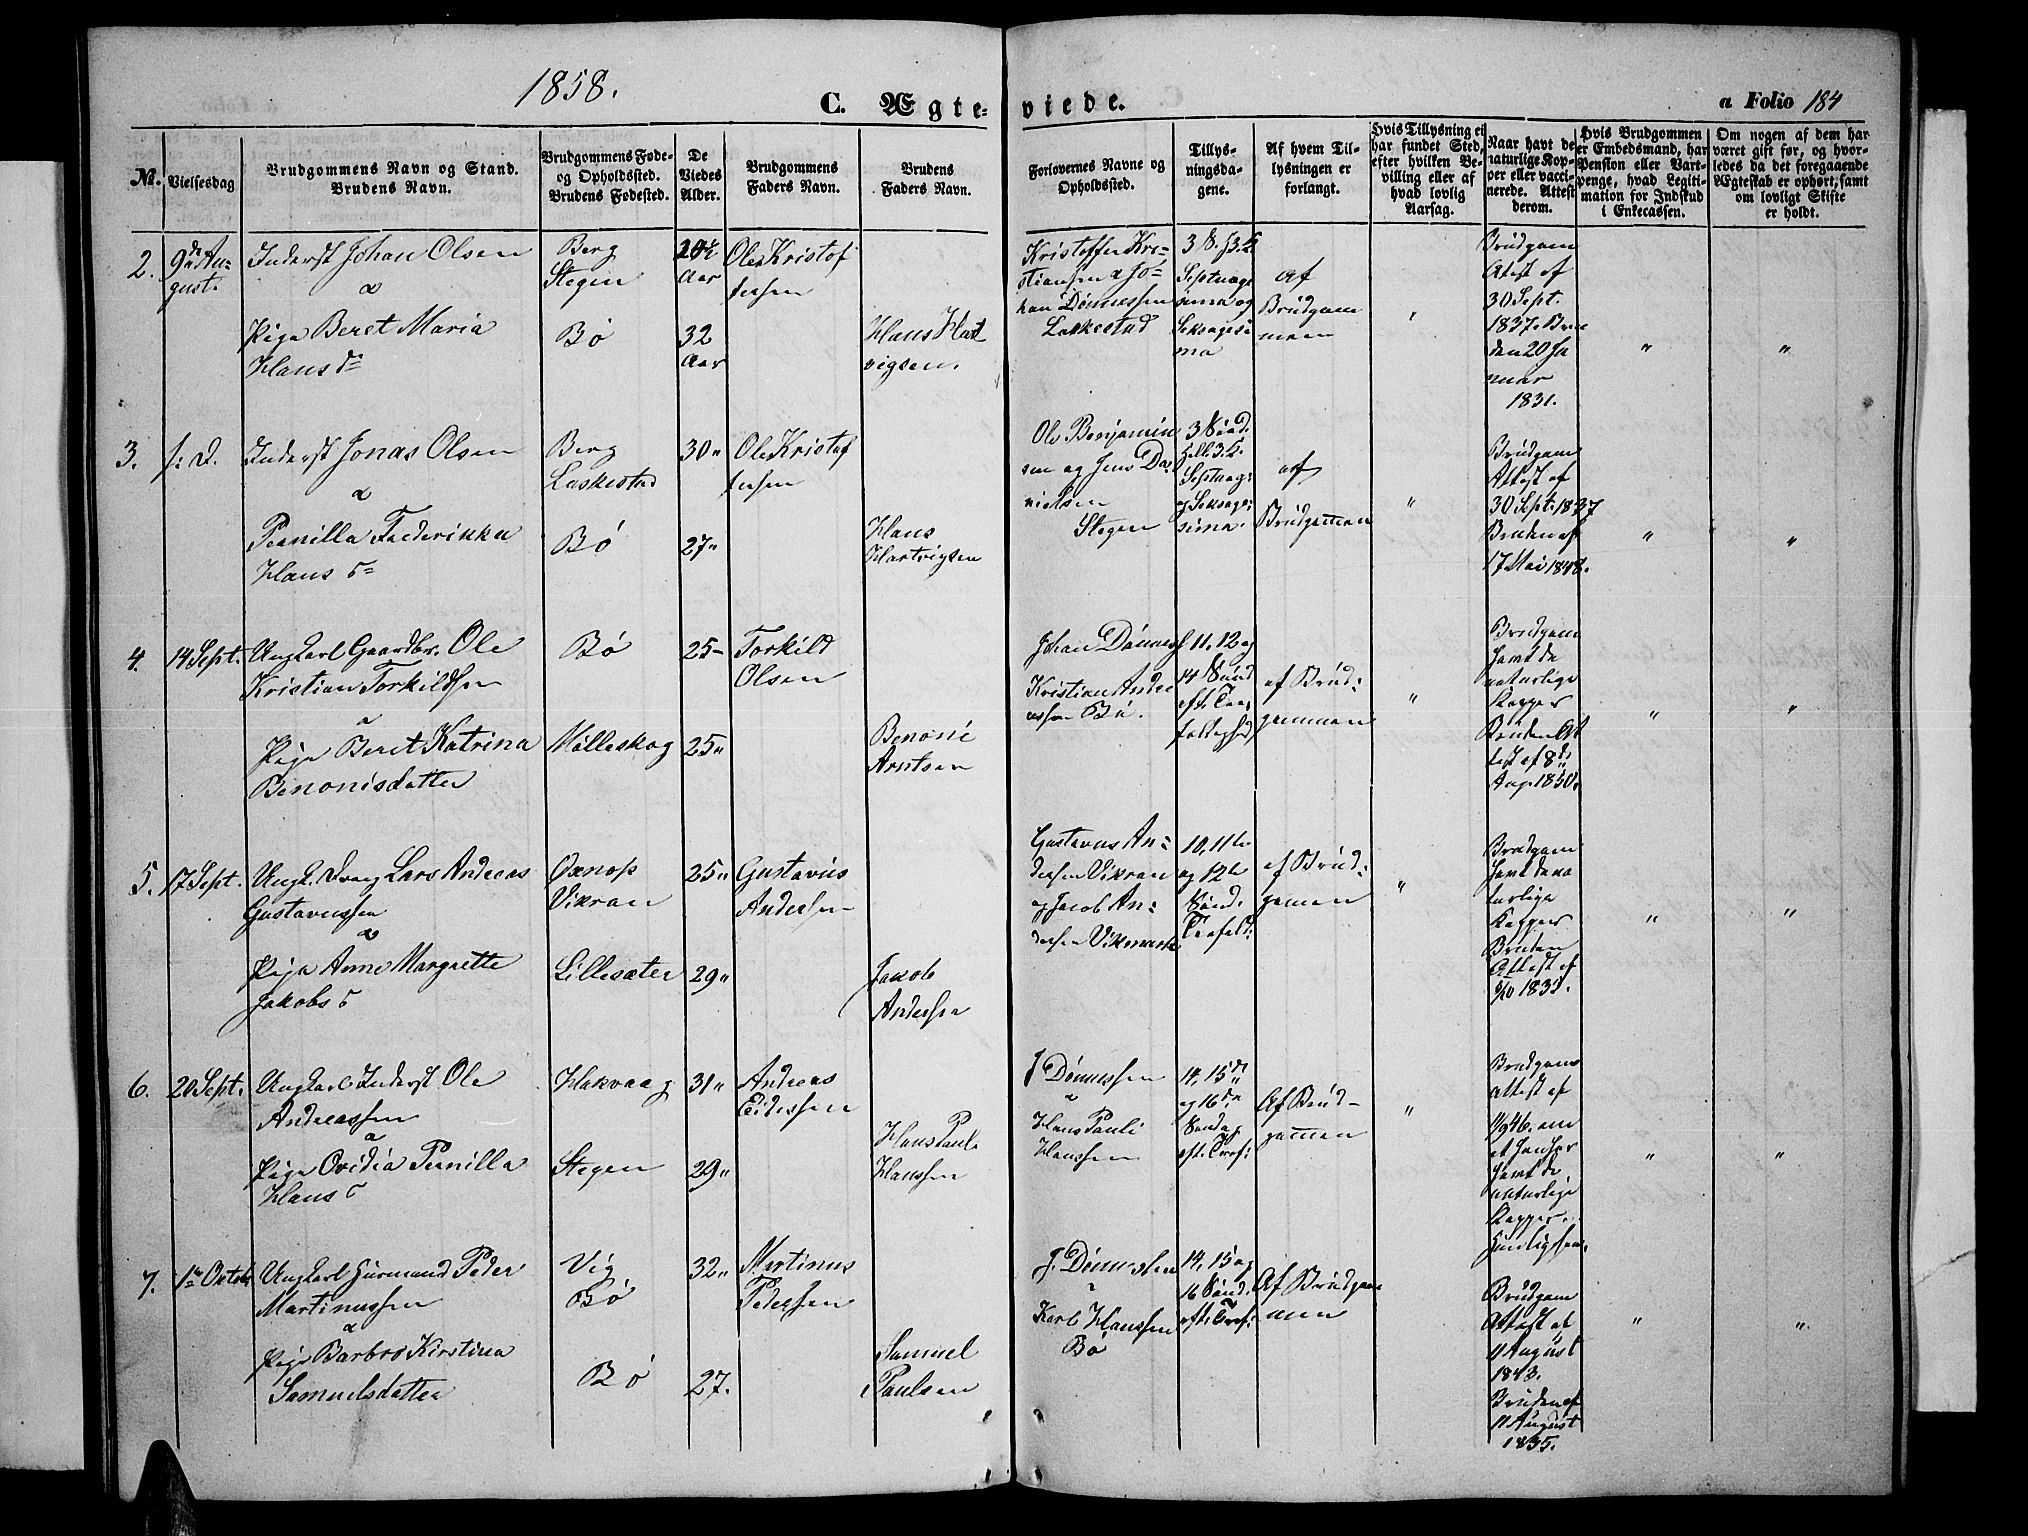 1858.
C. Ægte-
viede.
a Folio 184
No.
Vielsesdag
Brudgommens Navn og Stand.
Brudens Navn.
Brudgommens Føde-
og Opholdssted.
Brudens Fødested.
De
Viedes
Alder.
Brudgommens
Faders Navn.
Brudens
Faders Navn.
Forlovernes Navne og
Opholdssted.
Tillys-
ningsda-
gene.
Af hvem Til-
lysningen er
forlangt.
Hvis Tillysning ei
har fundet Sted,
efter hvilken Be-
villing eller af
hvad lovlig
Aarsag.
Naar havt de
naturlige Kop-
per eller vacci-
nerede. Attest
derom.
Hvis Brudgommen
er Embedsmand, har
Pension eller Vart-
penge, hvad Legiti-
mation for Indskud
i Enkecassen.
Om nogen af dem har
været gift før, og hvor-
ledes da det foregaaende
Ægteskab er ophørt, samt
om lovligt Skifte
er holdt.
2.
9de Au-
gust.
Inderst Johan Olsen
&
Pige Beret Maria
Hans dr
Berg
Stegen
Bø
Aar
32
Aar
Ole Kristof
fersen
Hans Hart
vigsen.
Kristoffer Kri-
stiansen & Jo-
han Dønnessen
Laskestad
Septuage
sima og
Seksagesi
ma
af
Brudgom
men
"
Brudgom
Atest af
30 Sept.
1837. Bru
den 20 Ja
nuar
1831.
"
"
3.
s: D.
Inderst Jonas Olsen
&
Pernilla Frederikka
Hans D
Berg
Laskestad
Bø
30"
27"
Ole Kristof
fersen
Hans
Hartvigsen
Ole Benjamin
sen og Jens Da-
nielsen
Stegen
3 Sønd.
Septuag:
og Seksage-
sima.
af
Brudgommen
"
Brudgom
Attest af
30 Sept. 1837
Bruden af
17 Mai 1848.
"
"
4.
14 Sept.
Ungkarl Gaardbr. Ole
Kristian Torkildsen
&
Pige Beret Katrina
Benonisdatter
Bø
Mølleskog
25-
25"
Torkild
Olsen
Benoni
Arntsen
Johan Dønnes
Kristian Andre
assen Bø.
11, 12 og
14 Sønd
eft. Tre
foldighed
af Brud-
gommen
"
Brudgom
havt de
naturlige
Kopper
Bruden At
test af 8de
Aug 1850.
"
"
5.
17 Sept.
Ungk. Dreng Lars Andreas
Gustavussen
&
Pige Anne Margrette
Jakobs D
Oxnop
Vikran
Lillesæter
25"
29"
Gustavus
Andersen
Jakob
Andersen
Gustavus An-
dersen Vikran
og Jacob An-
dersen Vikmark
10, 11te
og 12te
Sønd.
Trefold:
af Brud-
gommen
"
Brudgom
havt de na
turlige
Kopper
Bruden
Attest af
"
"
6.
20 Sept.
Ungkarl Inderst Ole
Andreassen
&
Pige Ovidia Pernilla
Hans D
Hakvaag
Stegen
31"
29"
Andreas
Eidessen
Hans Paul
Hanssen
J Dønnessen
&
Hans Pauli
Hanssen
14, 15de
og 16de
Søndag
eft. Tref:
Af Brud-
gommen
"
Brudgoms
attest af
havt de
naturlige
Kopper
"
"
7.
1ste Octob
Ungkarl Huusmand Peder
Martinussen
&
Pige Barbro Kirstina
Samuelsdatter
Vig
Bø
Bø
32"
27.
Martinus
Pedersen
Samuel
Paulsen
J. Dønnessen
&
Karl Hanssen
Bø
14, 15 og
16 Sønd.
eft. Tref:
Af Brudgom
men
Brudgom
Attest af
11 August
1843.
Bruden af
11 August
1835.
"
"